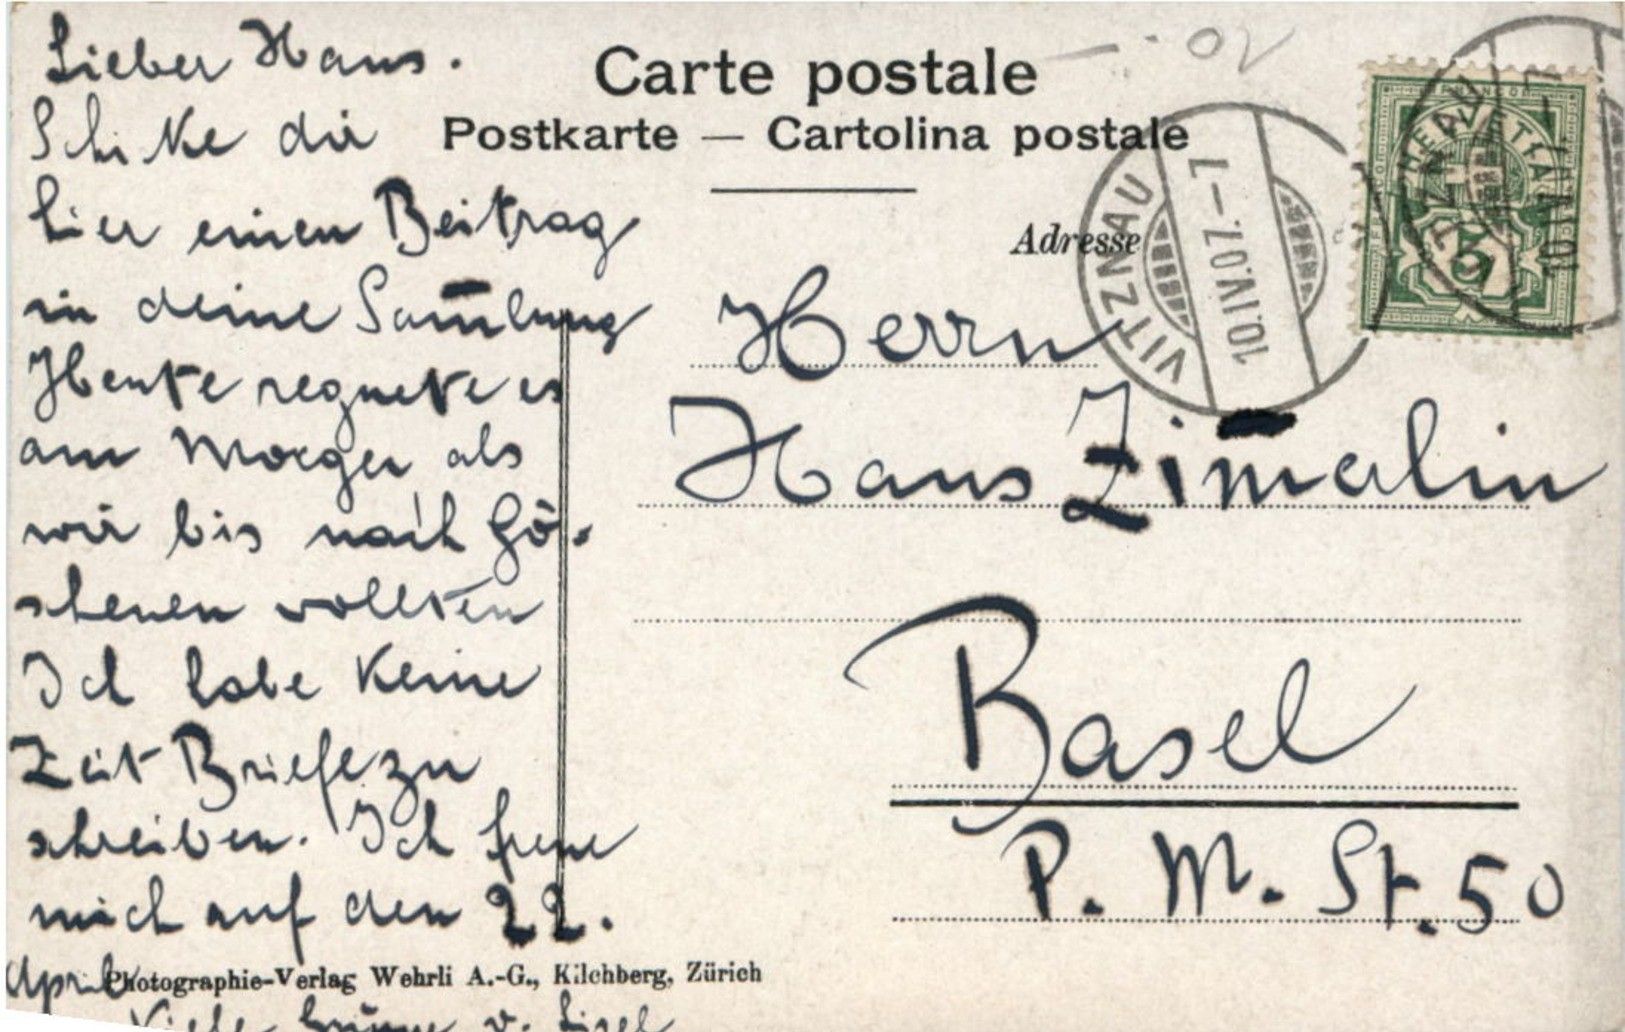 Carte postale
Postkarte — Cartolina postale
Adresse
Lieber Hans.
Schike dir
hier einen Beitrag
in deine Sam̄lung
Heute regnete es
am Morgen als
wir bis nach Gö-
schenen wollten
Ich habe keine
Zeit Briefe zu
schreiben. Ich freue
mich auf den 22.
April
Viele Grüsse v. Lisel
Photographie-Verlag Wehrli A.-G., Kilchberg, Zürich
Herrn
Hans Zim̄erlin
Basel
P. M. St. 50
VITZNAU
10.IV.07.-7
HELVETIA
5
02